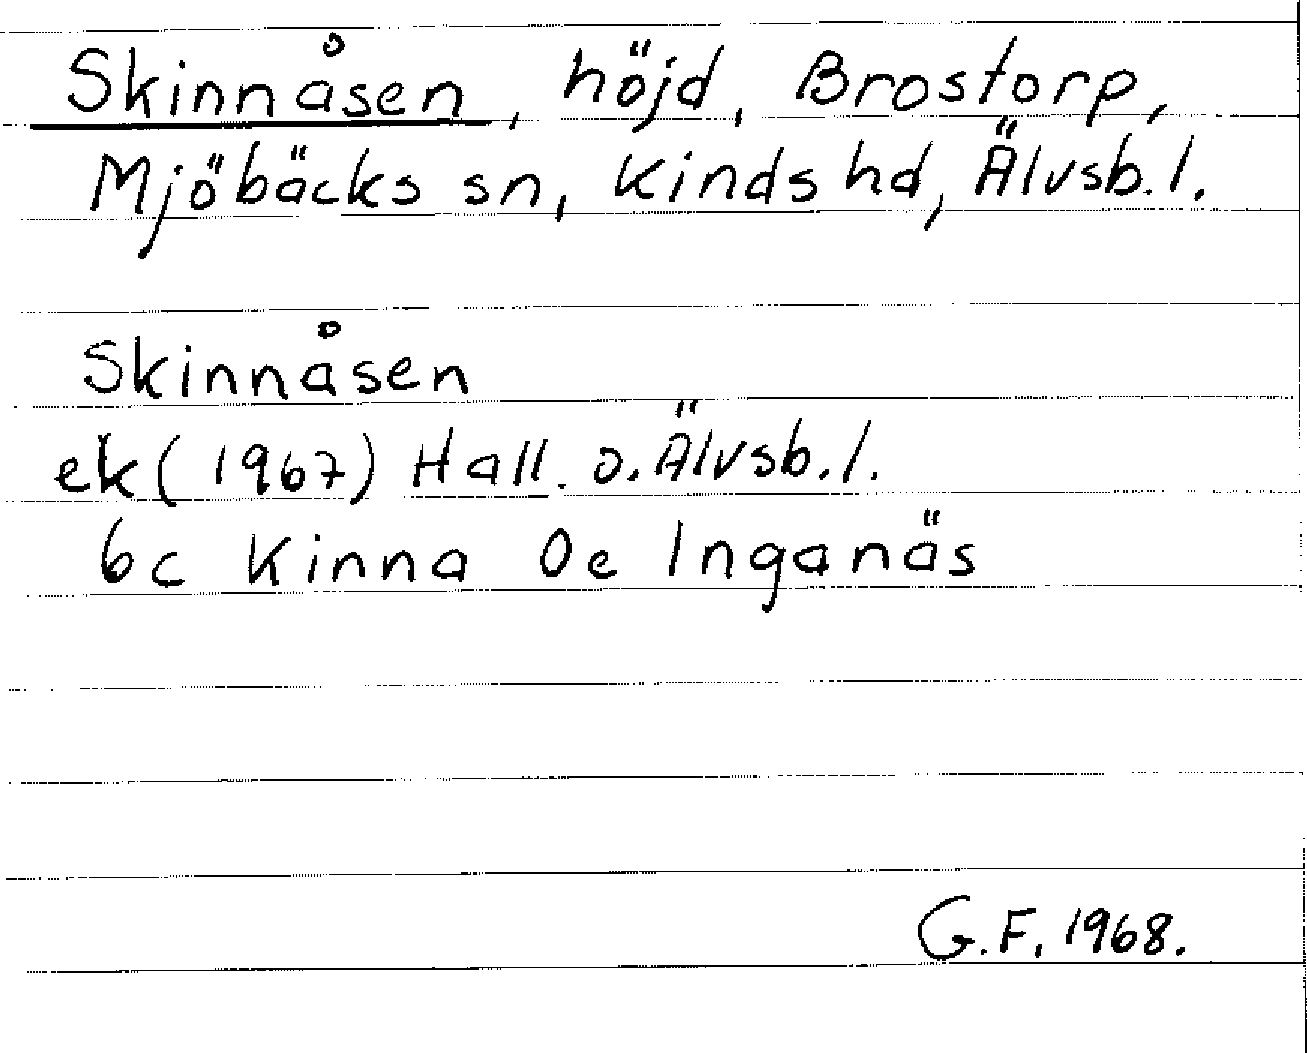 Skinnåsen, höjd, Brostorp,
Mjöbäcks sn, Kinds hd, Älvsb. l.
Skinnåsen
ek (1967) Hall. o. Älvsb. l.
6c Kinna 0e Inganäs
G.F. 1968.